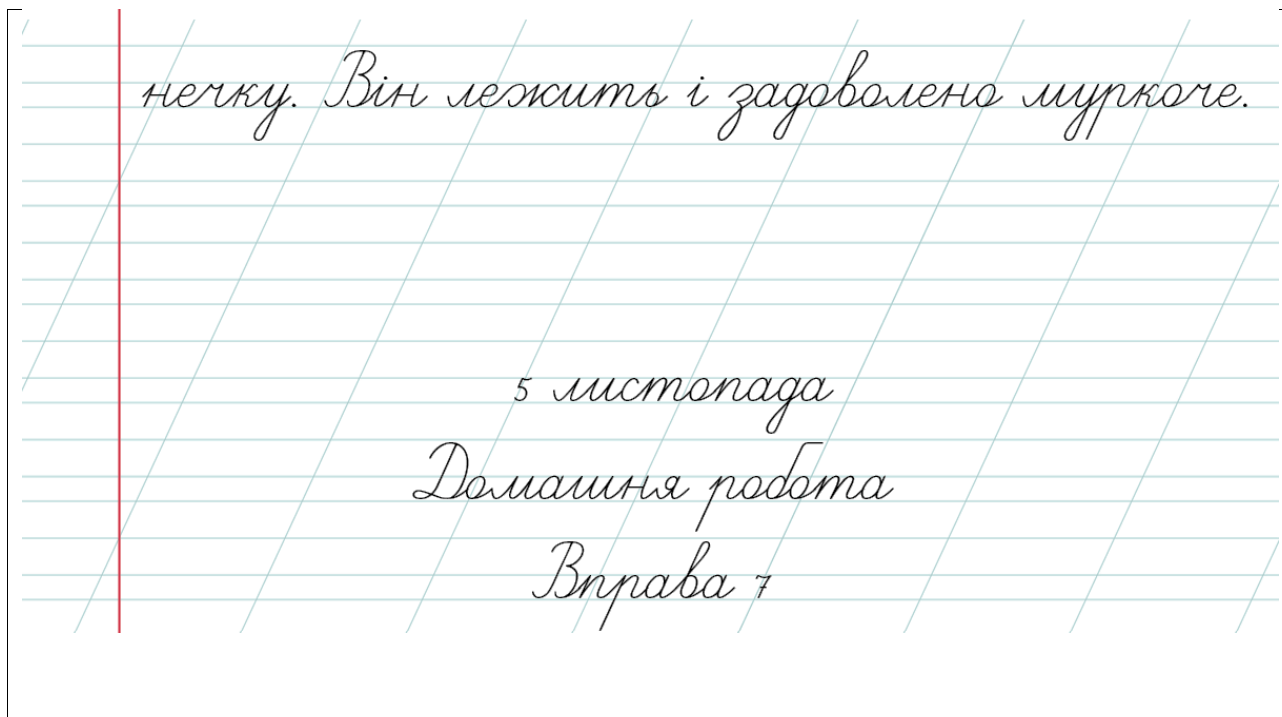 нечку. Він лежить і задоволено муркоче.
5 листопада
Домашня робота
Вправа 7